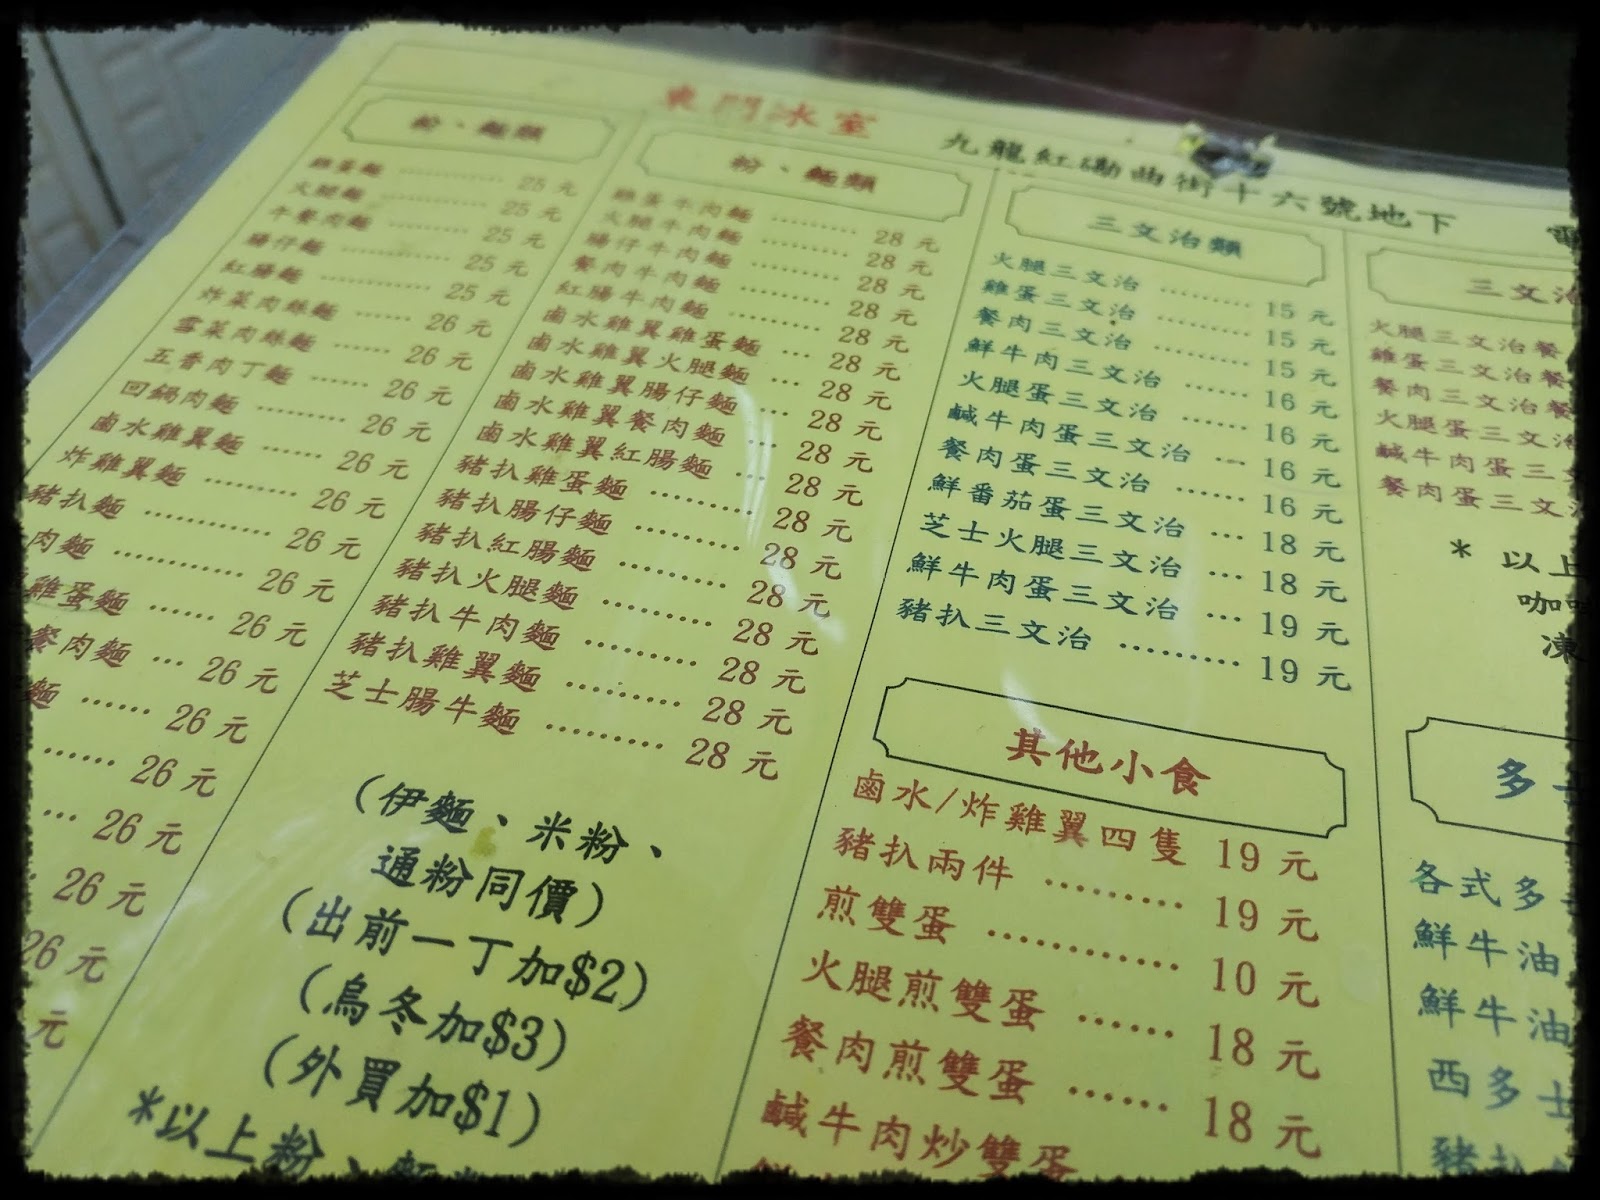 東門冰室 九龍紅磡曲街十六號地下 電
粉、麵類
雞蛋麵 ………… 25 元
火腿麵 ………… 25 元
午餐肉麵 ……… 25 元
腸仔麵 ………… 25 元
紅腸麵 ………… 25 元
炸菜肉絲麵 …… 26 元
雪菜肉絲麵 …… 26 元
五香肉丁麵 …… 26 元
回鍋肉麵 ……… 26 元
鹵水雞翼麵 …… 26 元
炸雞翼麵 ……… 26 元
豬扒麵 ………… 26 元
肉麵 ………… 26 元
雞蛋麵 …… 26 元
餐肉麵 … 26 元
麵 …… 26 元
…… 26 元
… 26 元
26 元
26 元
元
粉、麵類
雞蛋牛肉麵 ……… 28 元
火腿牛肉麵 ……… 28 元
腸仔牛肉麵 ……… 28 元
餐肉牛肉麵 ……… 28 元
紅腸牛肉麵 ……… 28 元
鹵水雞翼雞蛋麵 … 28 元
鹵水雞翼火腿麵 … 28 元
鹵水雞翼腸仔麵 … 28 元
鹵水雞翼餐肉麵 … 28 元
鹵水雞翼紅腸麵 … 28 元
豬扒雞蛋麵 ……… 28 元
豬扒腸仔麵 ……… 28 元
豬扒紅腸麵 ……… 28 元
豬扒火腿麵 ……… 28 元
豬扒牛肉麵 ……… 28 元
豬扒雞翼麵 ……… 28 元
芝士腸牛麵 ……… 28 元
(伊麵、米粉、
通粉同價)
(出前一丁加$2)
(烏冬加$3)
(外買加$1)
*以上粉、麵
三文治類
火腿三文治 ……… 15 元
雞蛋三文治 ……… 15 元
餐肉三文治 ……… 15 元
鮮牛肉三文治 …… 16 元
火腿蛋三文治 …… 16 元
鹹牛肉蛋三文治 … 16 元
餐肉蛋三文治 …… 16 元
鮮番茄蛋三文治 … 18 元
芝士火腿三文治 … 18 元
鮮牛肉蛋三文治 … 19 元
豬扒三文治 ……… 19 元
其他小食
鹵水/炸雞翼四隻 19 元
豬扒兩件 ……… 19 元
煎雙蛋 ………… 10 元
火腿煎雙蛋 …… 18 元
餐肉煎雙蛋 …… 18 元
鹹牛肉炒雙蛋
三文治
火腿三文治餐
雞蛋三文治餐
餐肉三文治餐
火腿蛋三文治
鹹牛肉蛋三
餐肉蛋三文
* 以上
咖啡
凍
多
各式多
鮮牛油
鮮牛油
西多士
豬扒